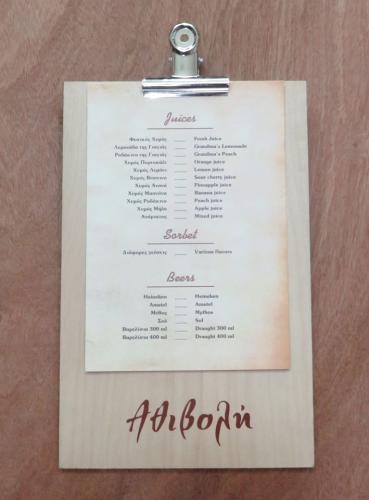 Juices
Φυσικός Χυμός ____ Fresh Juice
Λεμονάδα της Γιαγιάς ____ Grandma's Lemonade
Ροδάκινο της Γιαγιάς ____ Grandma's Peach
Χυμός Πορτοκάλι ____ Orange juice
Χυμός Λεμόνι ____ Lemon juice
Χυμός Βύσσινο ____ Sour cherry juice
Χυμός Ανανά ____ Pineapple juice
Χυμός Μπανάνα ____ Banana juice
Χυμός Ροδάκινο ____ Peach juice
Χυμός Μήλο ____ Apple juice
Ανάμικτος ____ Mixed juice
Sorbet
Διάφορες γεύσεις ____ Various flavors
Beers
Heineken ____ Heineken
Amstel ____ Amstel
Μύθος ____ Mythos
Σολ ____ Sol
Βαρελίσια 300 ml ____ Draught 300 ml
Βαρελίσια 400 ml ____ Draught 400 ml
Αθιβολή